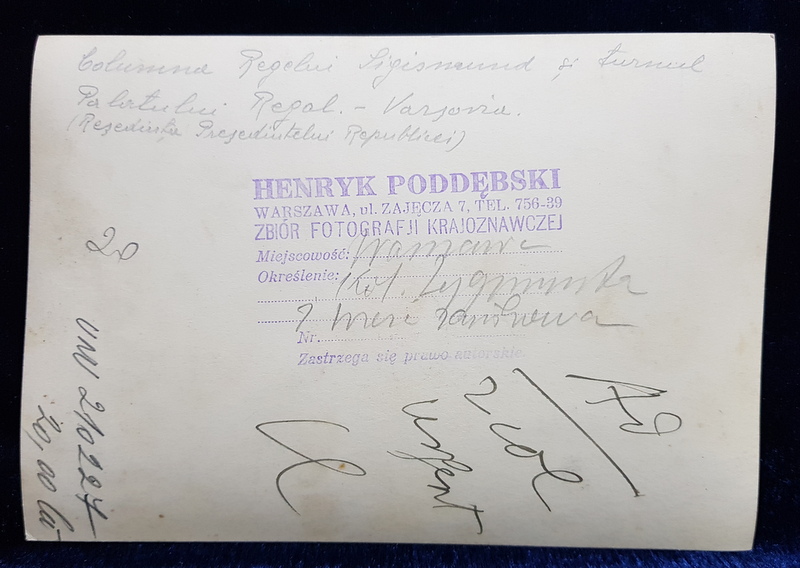 Columna Regelui Sigismund și turnul
Palatului Regal. - Varșovia.
(Reședința Președintelui Republicei)
HENRYK PODDĘBSKI
WARSZAWA, ul. ZAJĘCZA 7, TEL. 756-39
ZBIÓR FOTOGRAFJI KRAJOZNAWCZEJ
Miejscowość: Warszawa
Określenie: Kol. Zygmunta
i wieża zamkowa
Nr.
Zastrzega się prawo autorskie.
20
2 col
urgent
210227
20,00 lei